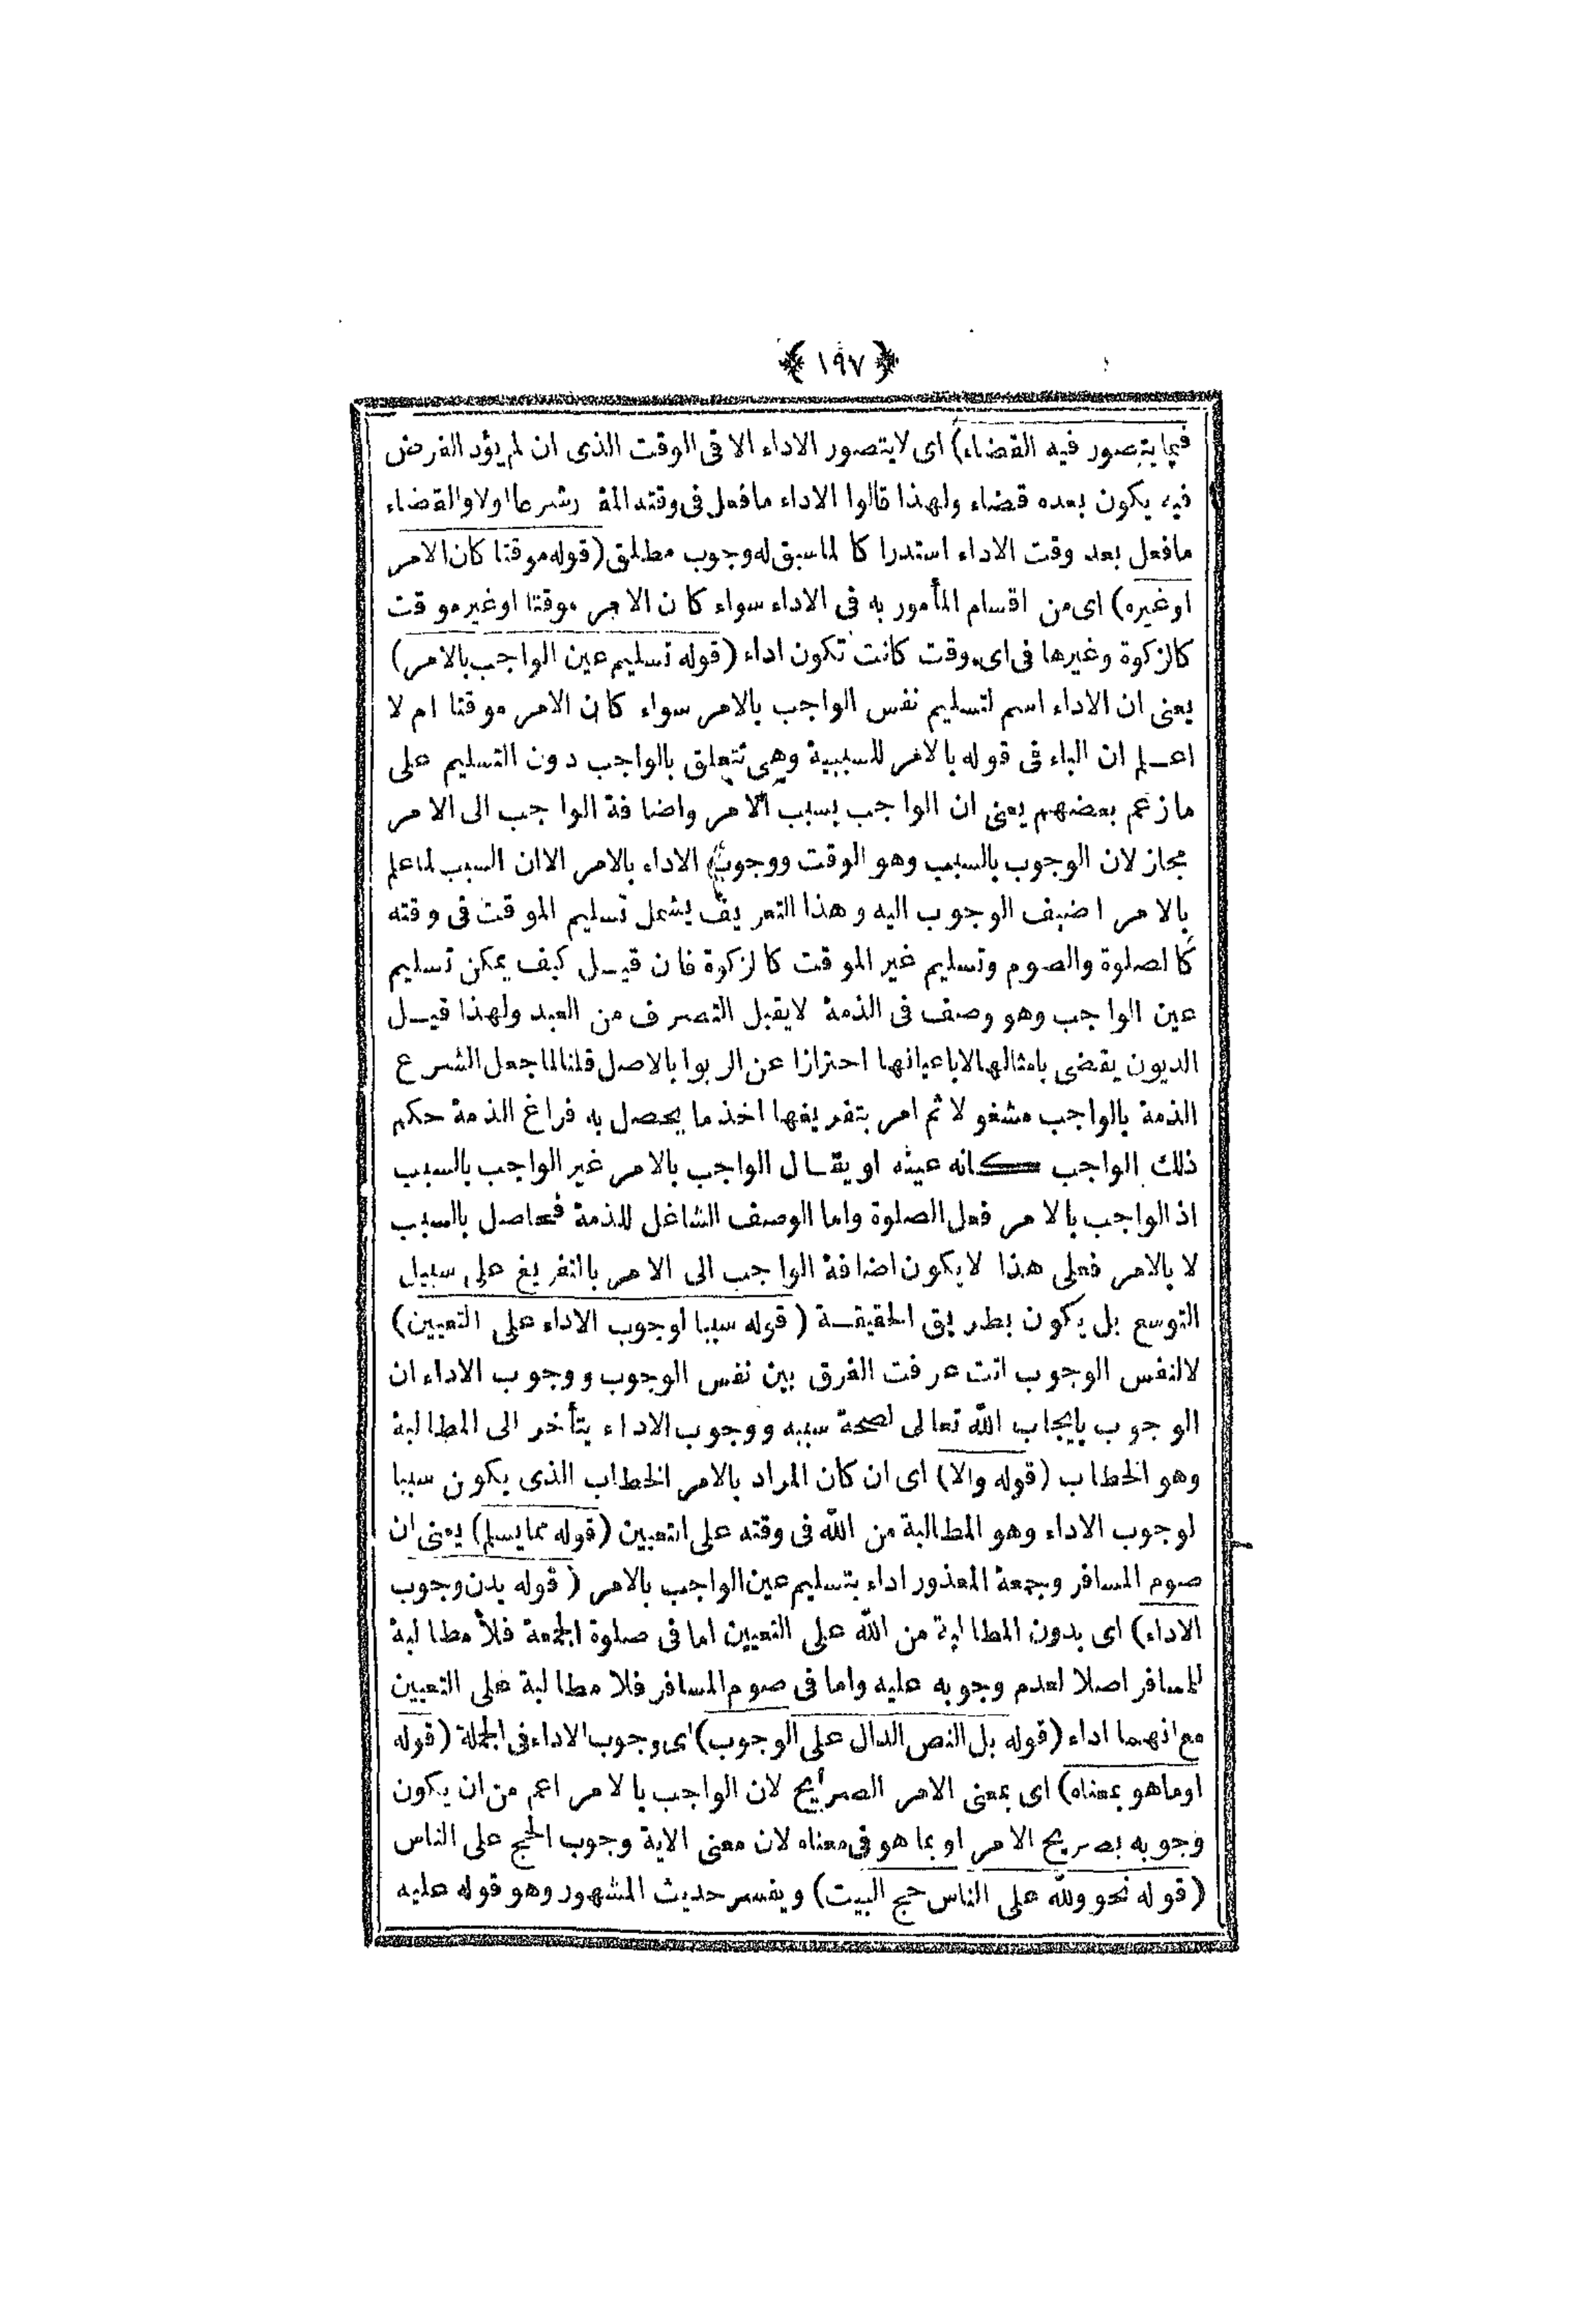 ﴿ ١٩٧ ﴾
فيما يتصور فيه القضاء) اى لا يتصور الاداء الا فى الوقت الذى ان لم يؤد الفرض
فيه يكون بعده قضاء ولهذا قالوا الاداء ما فعل فى وقته المقدر شرعا اولا والقضاء
ما فعل بعد وقت الاداء استدرا كا لما سبق له وجوب مطلق (قوله موقتا كان الامر
اوغيره) اى من اقسام المأمور به فى الاداء سواء كان الامر موقتا اوغير موقت
كالزكوة وغيرها فى اى وقت كانت تكون اداء (قوله تسليم عين الواجب بالامر)
يعنى ان الاداء اسم لتسليم نفس الواجب بالامر سواء كان الامر موقتا ام لا
اعلم ان الباء فى قوله بالامر للسببية وهى تتعلق بالواجب دون التسليم على
ما زعم بعضهم يعنى ان الواجب بسبب الامر واضافة الواجب الى الامر
مجاز لان الوجوب بالسبب وهو الوقت ووجوب الاداء بالامر الا ان السبب لما علم
بالامر اضيف الوجوب اليه وهذا التعريف يشمل تسليم الموقت فى وقته
كالصلوة والصوم وتسليم غير الموقت كالزكوة فان قيل كيف يمكن تسليم
عين الواجب وهو وصف فى الذمة لايقبل التصرف من العبد ولهذا قيل
الديون يقضى بامثالها لاباعيانها احترازا عن الربوا بالاصل قلنا لما جعل الشرع
الذمة بالواجب مشغولا ثم امر بتفريغها اخذ ما يحصل به فراغ الذمة حكم
ذلك الواجب كانه عينه او يقال الواجب بالامر غير الواجب بالسبب
اذ الواجب بالامر فعل الصلوة واما الوصف الشاغل للذمة فحاصل بالسبب
لا بالامر فعلى هذا لا يكون اضافة الواجب الى الامر بالتفريغ على سبيل
التوسع بل يكون بطريق الحقيقة (قوله سببا لوجوب الاداء على التعيين)
لالنفس الوجوب انت عرفت الفرق بين نفس الوجوب ووجوب الاداء ان
الوجوب بايجاب الله تعالى لصحة سببه ووجوب الاداء يتأخر الى المطالبة
وهو الخطاب (قوله والا) اى ان كان المراد بالامر الخطاب الذى يكون سببا
لوجوب الاداء وهو المطالبة من الله فى وقته على التعيين (قوله مما يسلم) يعنى ان
صوم المسافر وجمعة المعذور اداء بتسليم عين الواجب بالامر (قوله بدن وجوب
الاداء) اى بدون المطالبة من الله على التعيين اما فى صلوة الجمعة فلا مطالبة
للمسافر اصلا لعدم وجوبه عليه واما فى صوم المسافر فلا مطالبة على التعيين
مع انهما اداء (قوله بل النص الدال على الوجوب) اى وجوب الاداء فى الجملة (قوله
اوما هو بمعناه) اى بمعنى الامر الصريح لان الواجب بالامر اعم من ان يكون
وجوبه بصريح الامر او بما هو فى معناه لان معنى الاية وجوب الحج على الناس
(قوله نحو ولله على الناس حج البيت) ويفسر حديث المشهور وهو قوله عليه